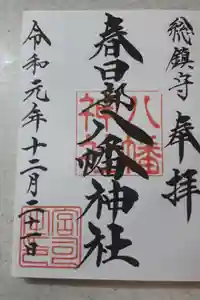 総鎮守 奉拝
春日部八幡神社
八幡神社
令和元年十二月二十一日